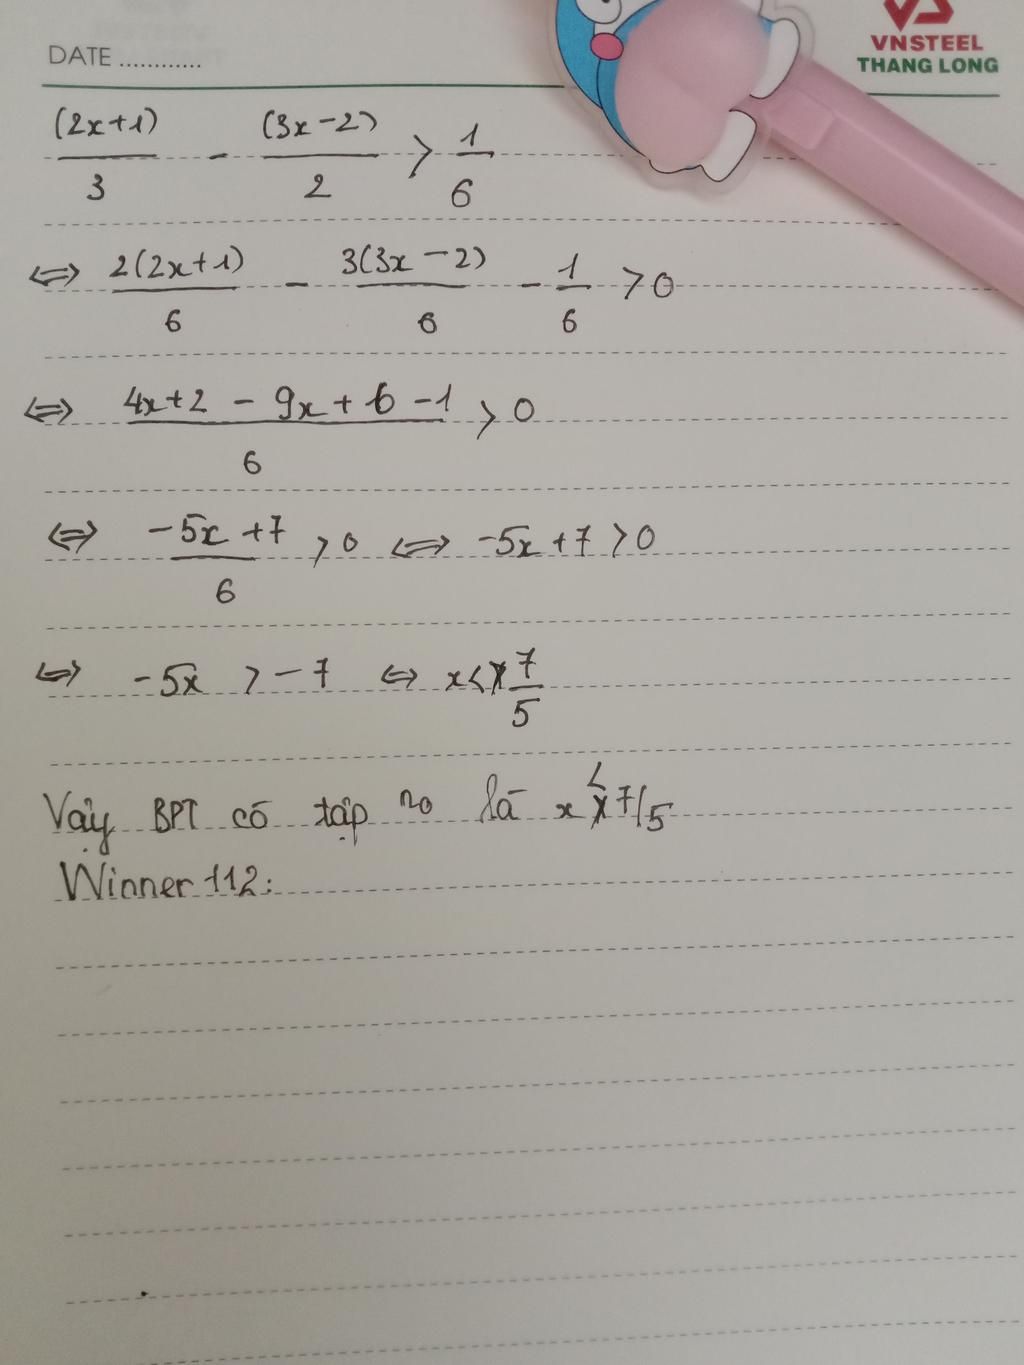 DATE ............
VNSTEEL
THANG LONG
(2x+1)/3 - (3x-2)/2 > 1/6
⇔ 2(2x+1)/6 - 3(3x-2)/6 - 1/6 > 0
⇔ (4x+2 - 9x+6-1)/6 > 0
⇔ (-5x+7)/6 > 0 ⇔ -5x+7 > 0
⇔ -5x > -7 ⇔ x < 7/5
Vậy BPT có tập no là x < 7/5
Winner 112: